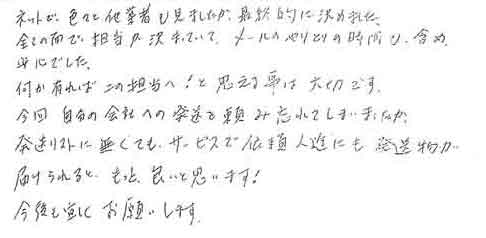 ネットで、色々と他業者も見ましたが、最終的に決めました。
全ての面で、担当が決まっていて、メールのやりとりの時間も、含め、
安心でした。
何か有れば この担当へ！と思える事は 大切です。
今回 自分の会社への発送を頼み忘れてしまいましたが、
発送リストに無くても、サービスで依頼人達にも発送物が
届けられると、もっと、良いと思います！
今後も宜しく お願いします。